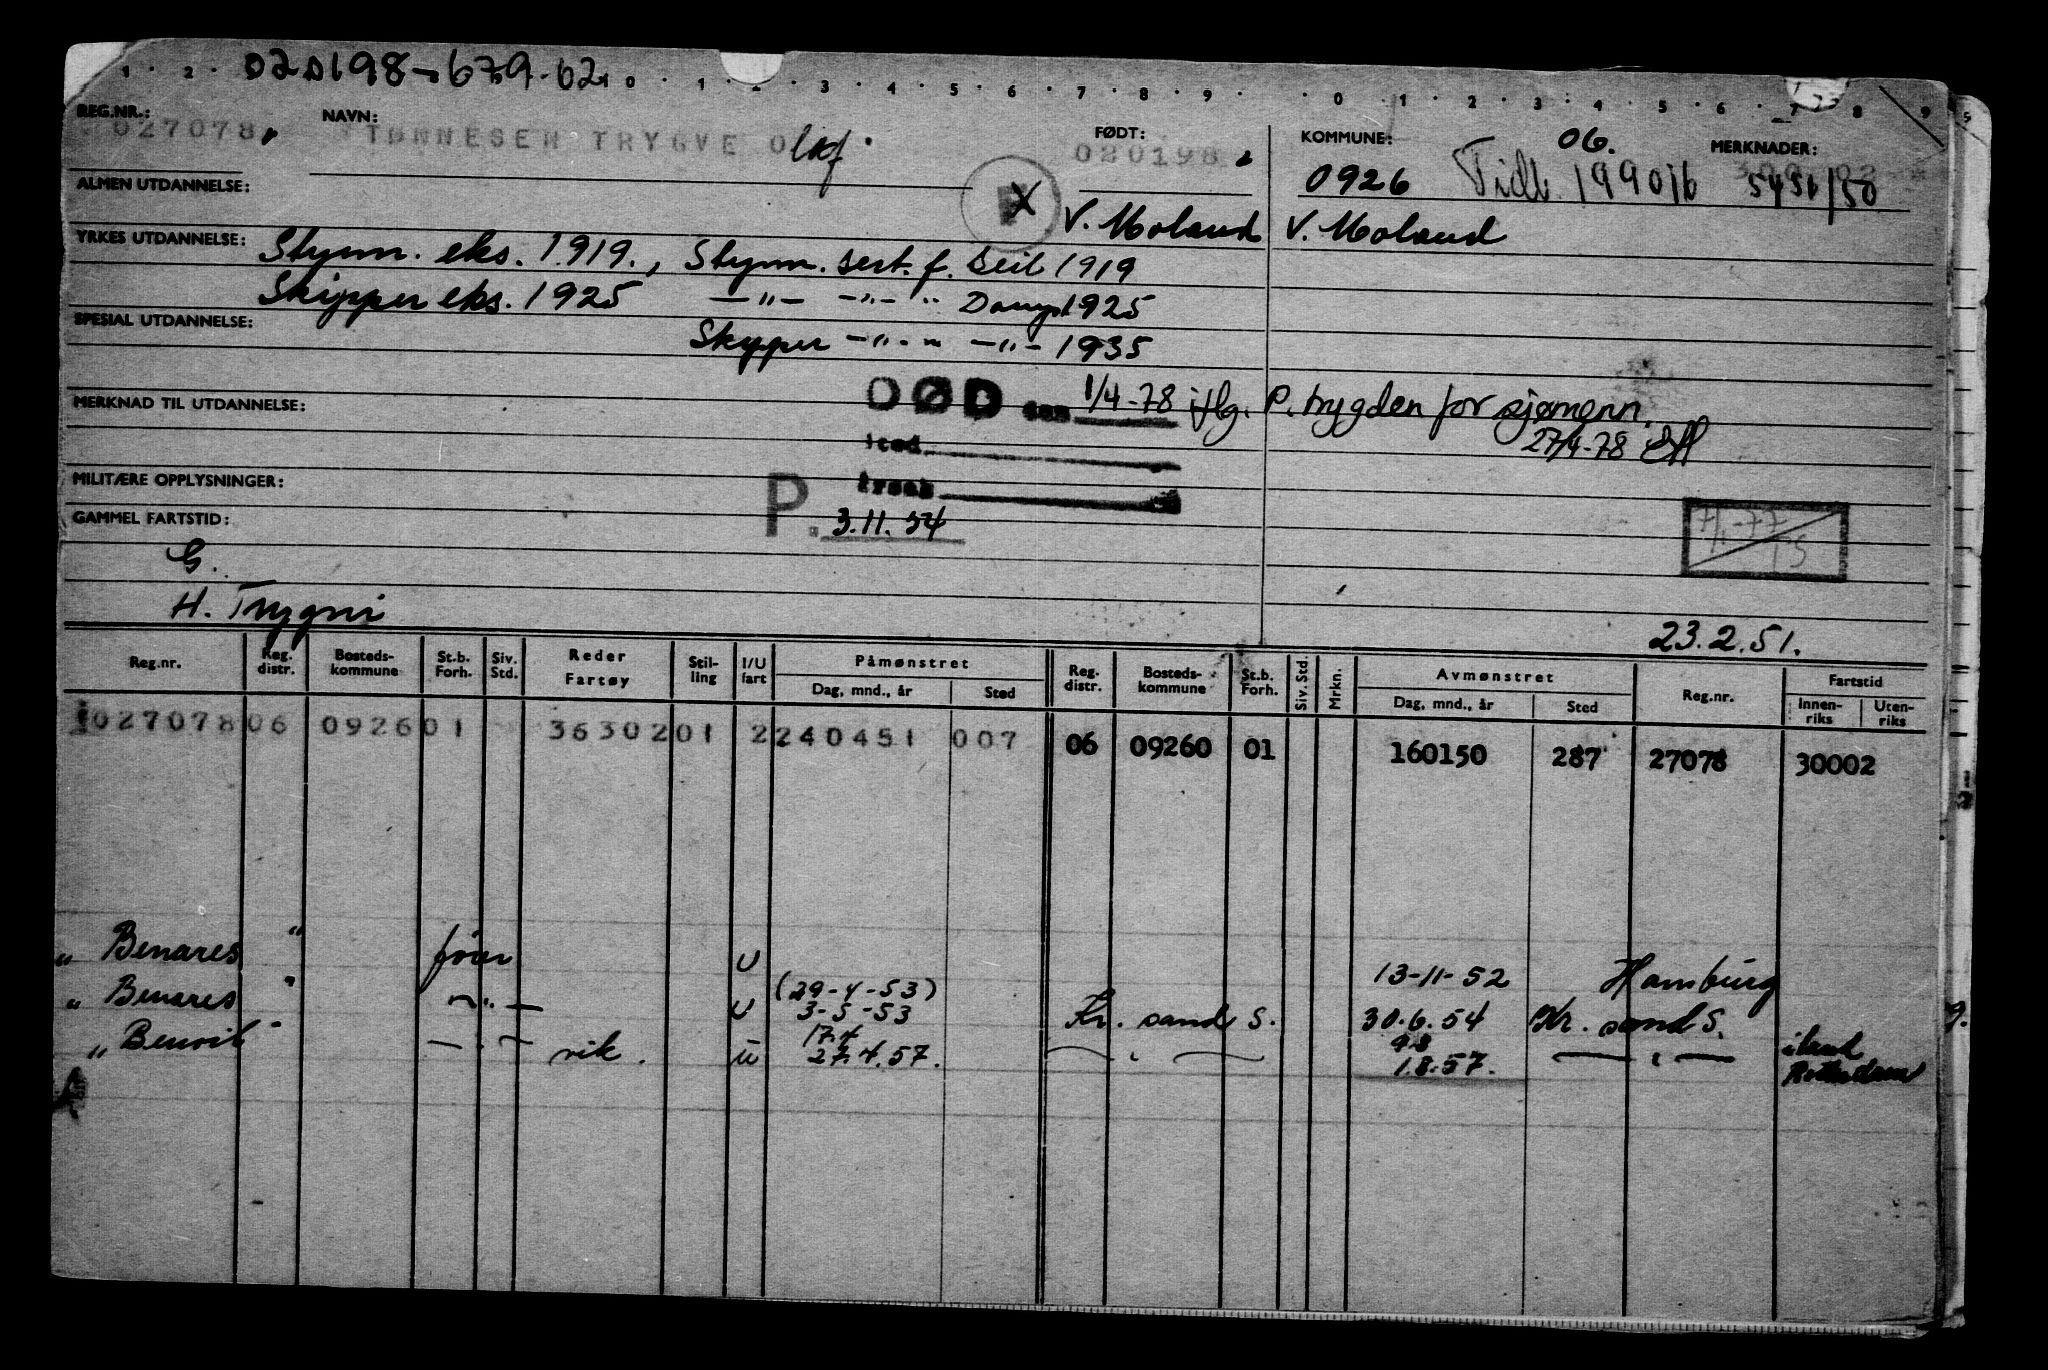 020198-679.62
1 2 0 1 3 4 5 6 7 8 9 0 1 2 3 4 5 6 7 8 9
REG.NR.: 027078. NAVN: TØNNESEN TRYGVE Olaf. FØDT: 020198 KOMMUNE: 0926 06. MERKNADER:
Tidl. 199016 5456/50
ALMEN UTDANNELSE: X V. Moland V. Moland
YRKES UTDANNELSE: Styrm. eks. 1919., Styrm. sert. f. Seil 1919
Skipper eks. 1925 —"— —"— " Damp 1925
SPESIAL UTDANNELSE: Skipper —"— " —"— 1935
MERKNAD TIL UTDANNELSE: DØD den 1/4-78 iflg. P. trygden for sjømenn.
27/4-78
i sted
årsak
MILITÆRE OPPLYSNINGER: P. 3.11.54
GAMMEL FARTSTID: 7/1-77
TS
G.
H. Trygni
23.2.51.
Reg.nr. Reg. distr. Bosteds-kommune St.b. Forh. Siv. Std. Reder Fartøy Stil-ling I/U fart Påmønstret Dag, mnd., år Sted Reg. distr. Bosteds-kommune St.b. Forh. Siv. Std. Mrkn. Avmønstret Dag, mnd., år Sted Reg.nr. Fartstid Innen-riks Uten-riks
027078 06 0926 01 36302 01 2 240451 007 06 09260 01 160150 287 27078 30002
" Benares " fører U 13-11-52 Hamburg
" Benares " —"— U (29-4-53) 3-5-53 Kr. sand S. 30.6.54 Kr. sand S.
" Benvik —"— vik. U 17.4 27.4.57. —"— 9.8 1.8.57. —"— iland Rotterdam